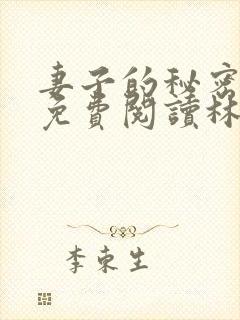 妻子的秘密
免費閱讀林
李東生